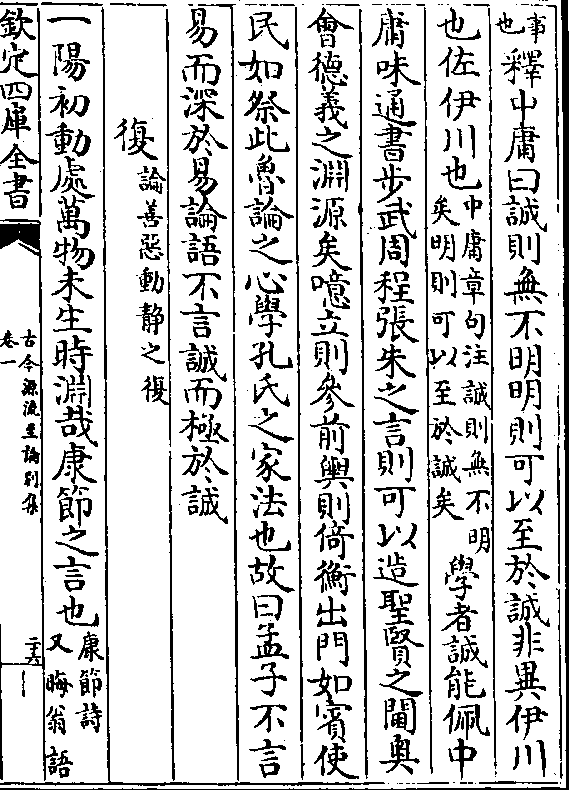 事也釋中庸曰誠則無不明明則可以至於誠非異伊川
也佐伊川也中庸章句注誠則無不明矣明則可以至於誠矣學者誠能佩中
庸味通書步武周程張朱之言則可以造聖賢之閫奥
會德義之淵源矣噫立則參前輿則倚衡出門如賓使
民如祭此魯論之心學孔氏之家法也故曰孟子不言
易而深於易論語不言誠而極於誠
復論善惡動静之復
一陽初動處萬物未生時淵哉康節之言也康節詩又晦翁語
欽定四庫全書
古今源流至論别集
卷一
二十六